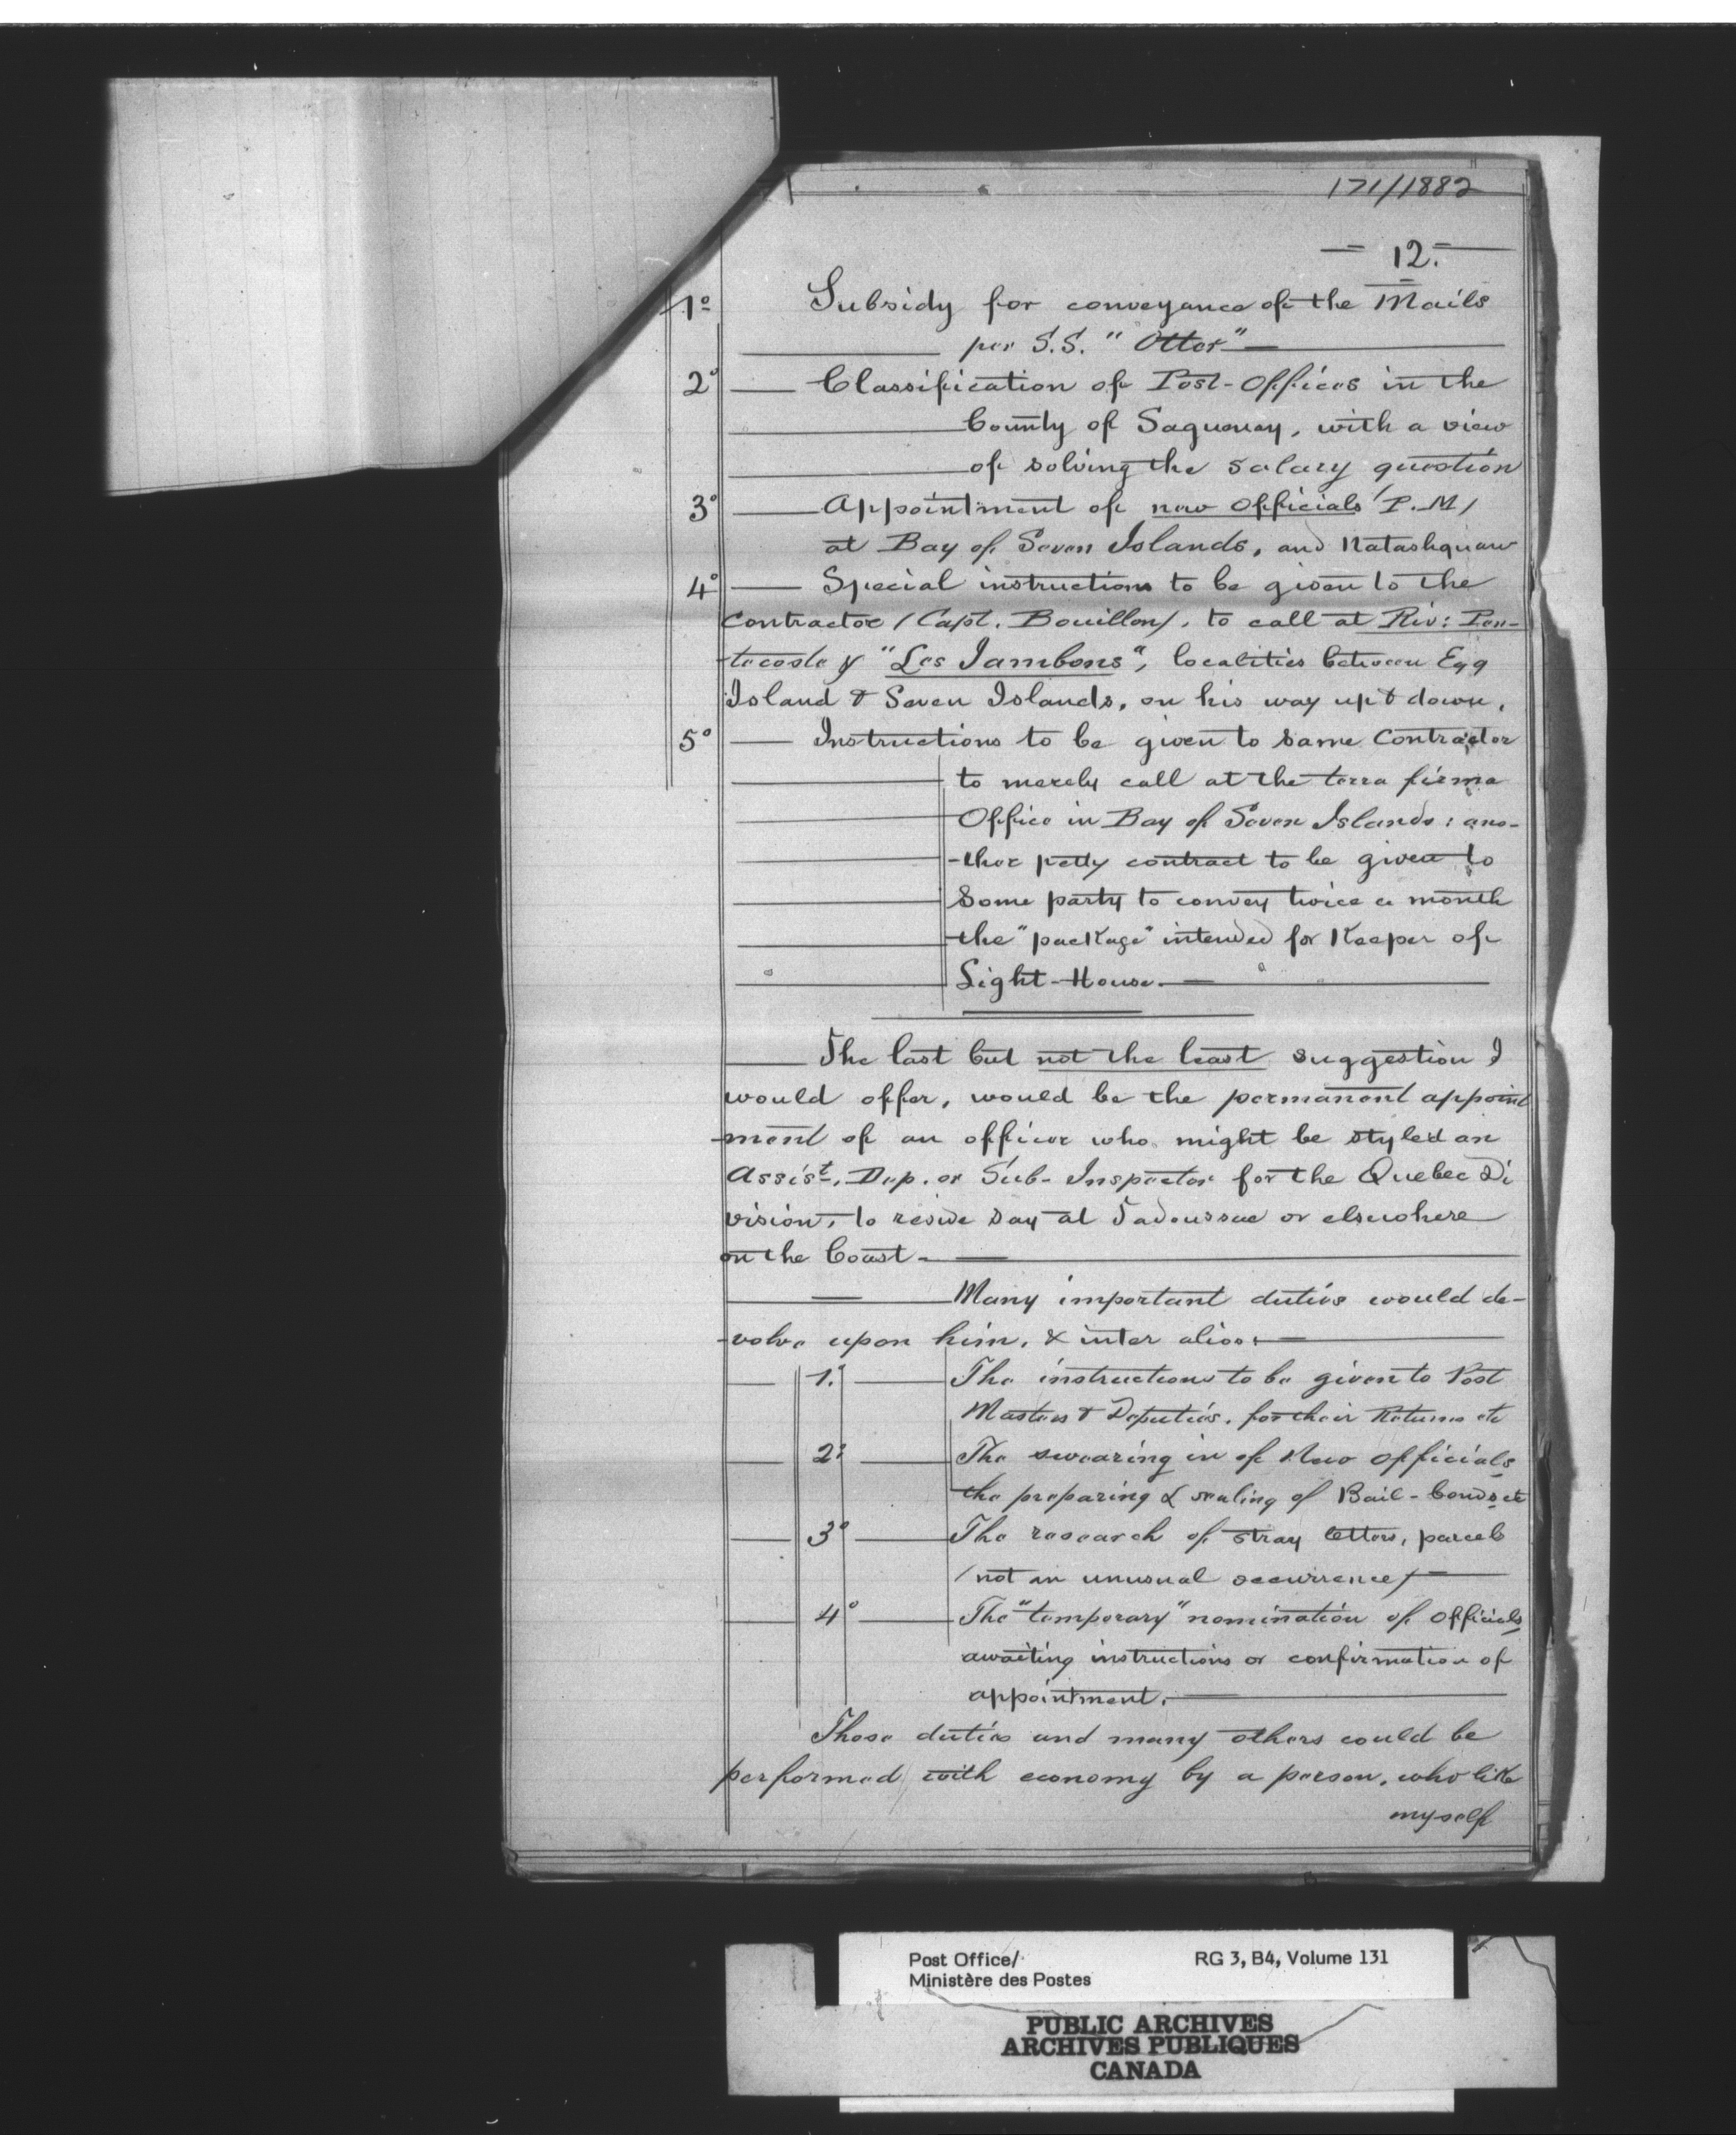 171/1882
— 12. —
1º Subsidy for conveyance of the Mails
per S.S. "Otter" —
2º — Classification of Post-Offices in the
County of Saguenay, with a view
of solving the salary question
3º — Appointment of new officials (P.M)
at Bay of Seven Islands, and Natashquaw
4º — Special instructions to be given to the
Contractor (Capt. Bouillon), to call at Riv: Pen-
-tecoste & "Les Jambons", localities between Egg
Island & Seven Islands, on his way up & down.
5º — Instructions to be given to same Contractor
to merely call at the terra firma
Office in Bay of Seven Islands: ano-
-ther petty contract to be given to
some party to convey twice a month
the "package" intended for Keeper of
Light-House. —
— The last but not the least suggestion I
would offer, would be the permanent appoint
-ment of an officer who might be styled an
Assist. Dep. or Sub-Inspector for the Quebec Di
vision, to reside say at Tadoussac or elsewhere
on the Coast. —
— Many important duties would de-
-volve upon him, & inter alios: —
— 1.º — The instructions to be given to Post
Masters & Deputies, for their Returns etc
— 2º — The swearing in of New officials
the preparing & sealing of Bail-bonds etc
— 3º — The research of stray letters, parcels
(not an unusual occurrence) —
— 4º — The "temporary" nomination of officials
awaiting instructions or confirmation of
appointment. —
These duties and many others could be
performed with economy by a person, who like
myself
Post Office/
Ministère des Postes
RG 3, B4, Volume 131
PUBLIC ARCHIVES
ARCHIVES PUBLIQUES
CANADA